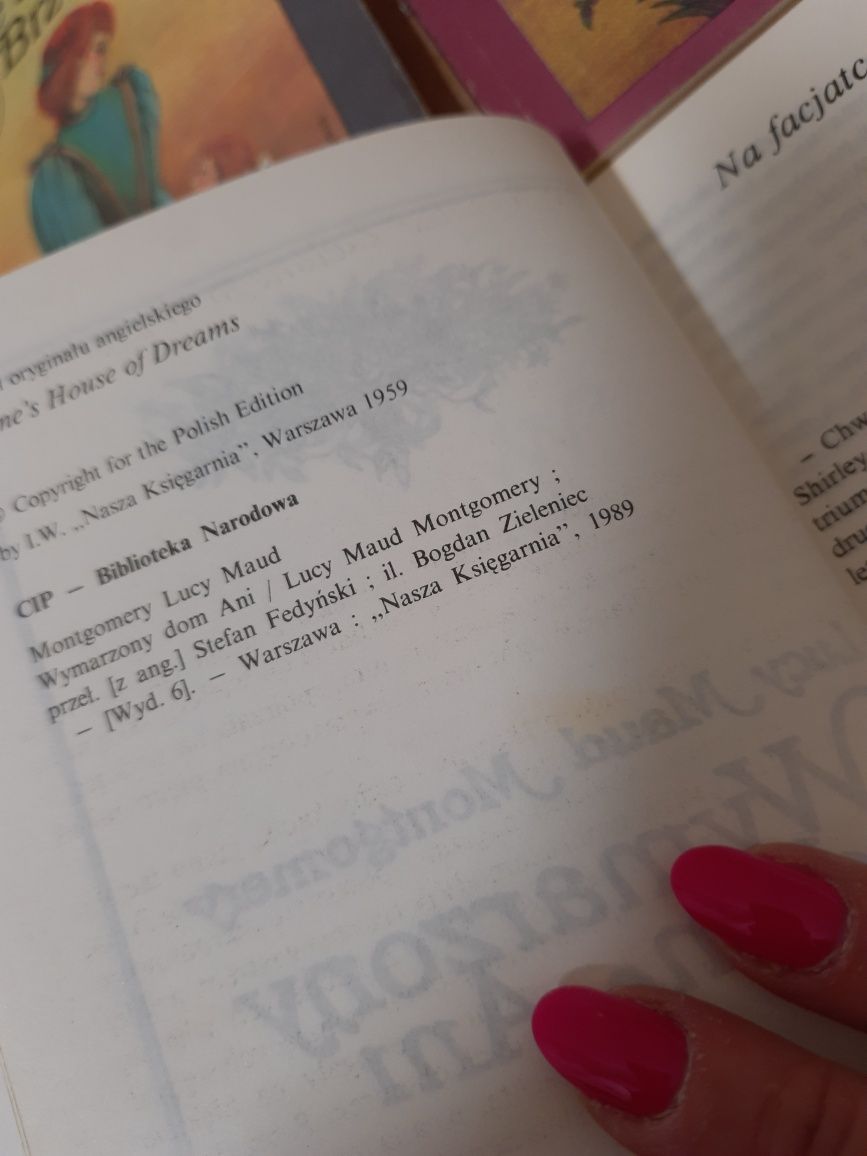 Brz
oryginału angielskiego
House of Dreams
© Copyright for the Polish Edition
by I.W. „Nasza Księgarnia”, Warszawa 1959
CIP — Biblioteka Narodowa
Montgomery Lucy Maud
Wymarzony dom Ani / Lucy Maud Montgomery ;
przeł. [z ang.] Stefan Fedyński ; il. Bogdan Zieleniec
— [Wyd. 6]. — Warszawa : „Nasza Księgarnia”, 1989
Lucy Maud Montgomery
Wymarzony
Ani
Na facjatc
– Chw
Shirley
trium
dru